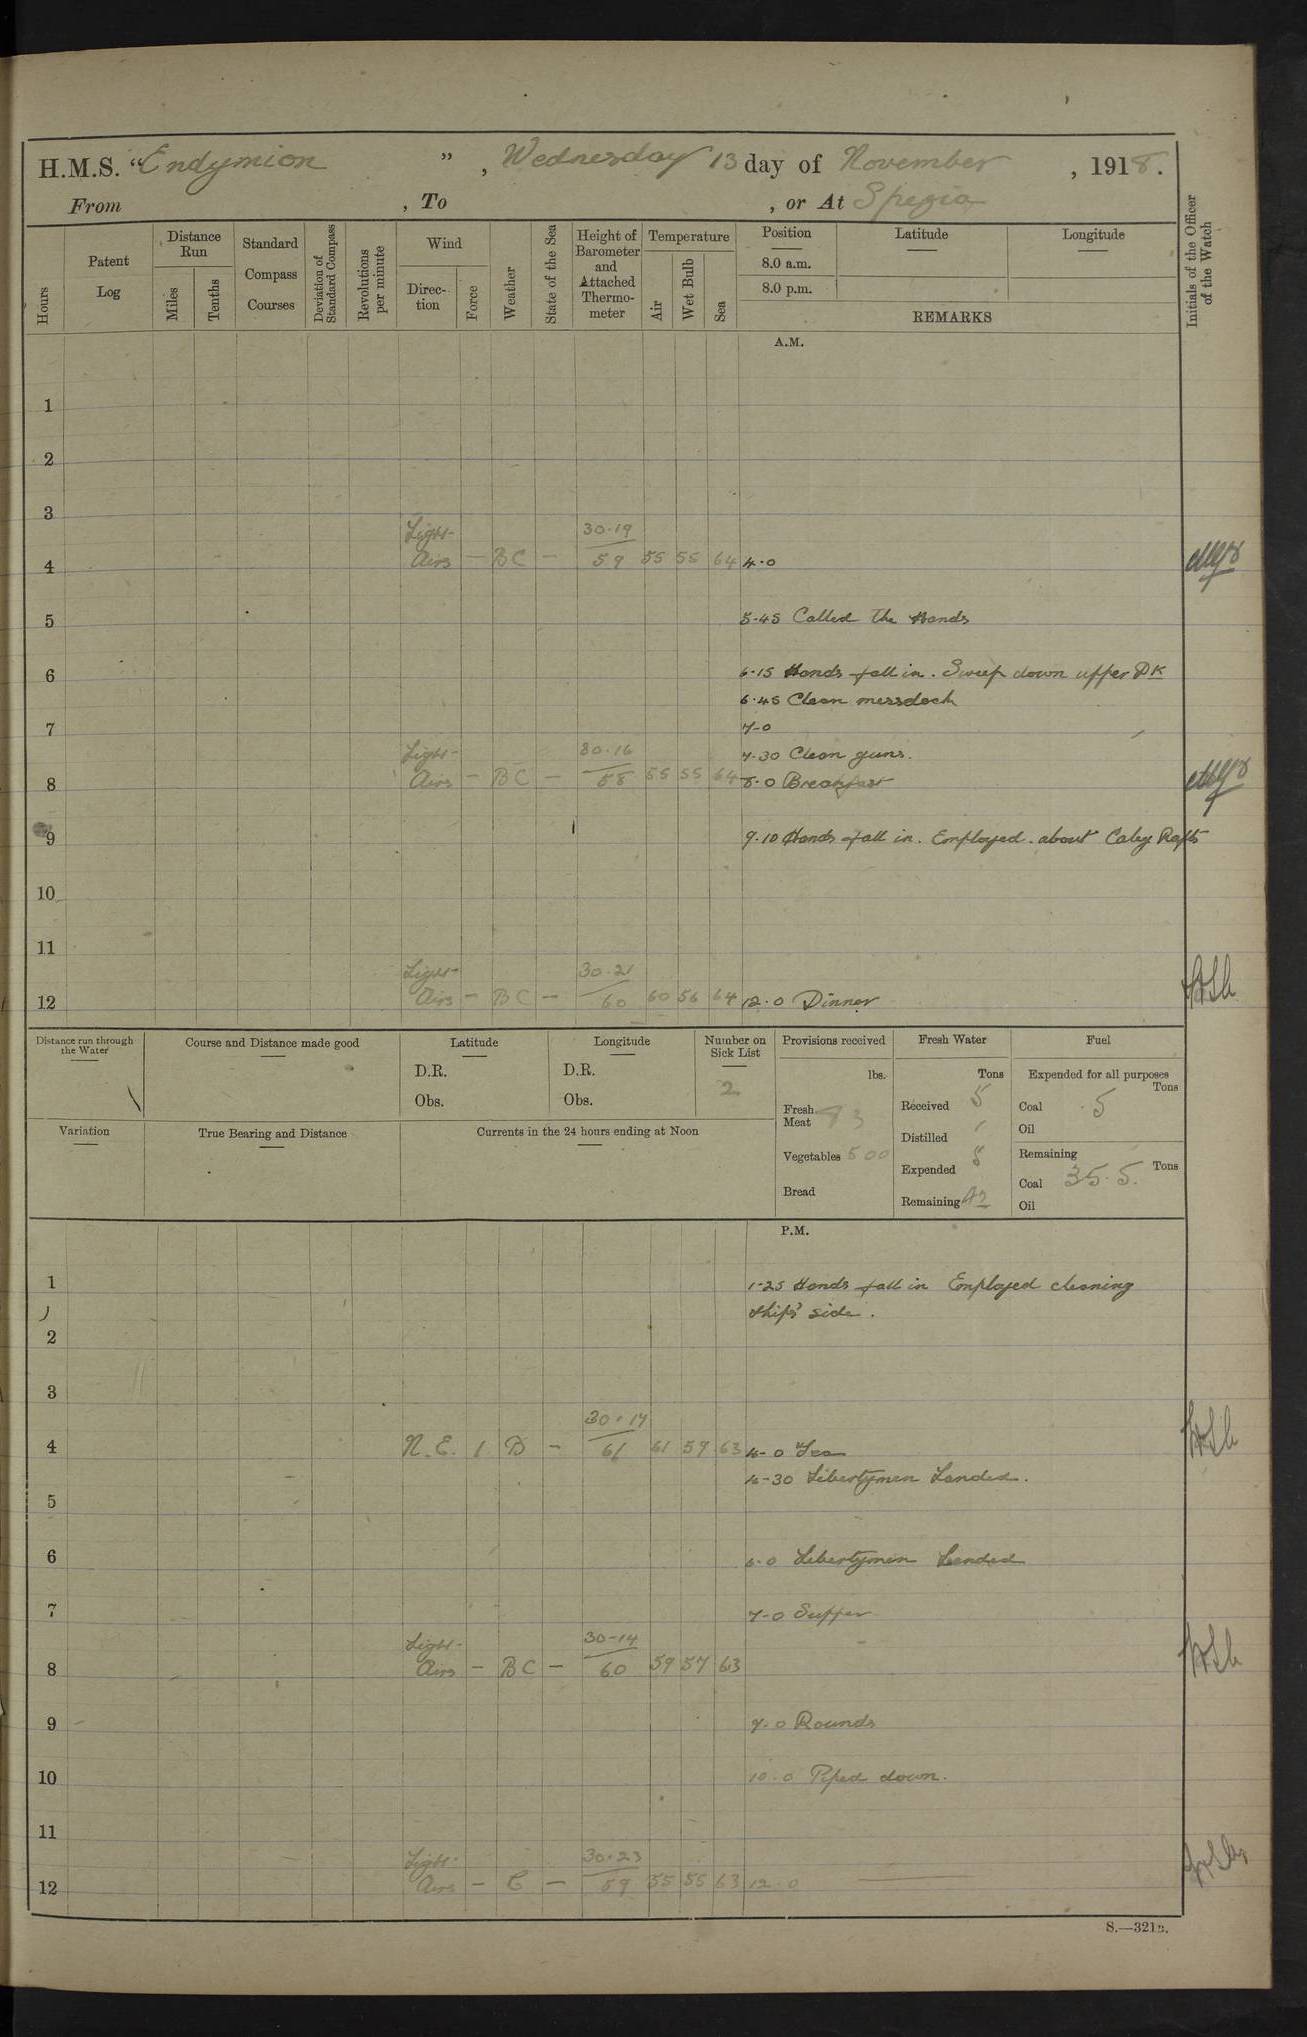 H.M.S. "Endymion", Wednesday 13 day of November, 1918.
From , To , or At Spezia
Hours
Patent Log
Distance Run
Miles
Tenths
Standard Compass Courses
Deviation of Standard Compass
Revolutions per minute
Wind
Direction
Force
Weather
State of the Sea
Height of Barometer and Attached Thermometer
Temperature
Air
Wet Bulb
Sea
Position
8.0 a.m.
8.0 p.m.
Latitude
Longitude
REMARKS
Initials of the Officer of the Watch
A.M.
1
2
3
Light 30.19
4 Airs — BC — 59 55 55 64 4.0
5 5.45 Called the Hands
6 6.15 Hands fall in. Sweep down upper DK
6.45 Clean messdeck
7 7-0
Light 30.16 7.30 Clean guns.
8 Airs — BC — 58 55 55 64 8.0 Breakfast
9 9.10 Hands fall in. Employed about Caley Rafts
10
11
Light 30.21
12 Airs — BC — 60 60 56 64 12.0 Dinner
Distance run through the Water
Course and Distance made good
Latitude
D.R.
Obs.
Longitude
D.R.
Obs.
Number on Sick List
2
Provisions received
lbs.
Fresh Meat
Vegetables 500
Bread
Fresh Water
Tons
Received 5
Distilled
Expended 5
Remaining
Fuel
Expended for all purposes
Tons
Coal 5
Oil
Remaining
Tons
Coal 355.
Oil
Variation
True Bearing and Distance
Currents in the 24 hours ending at Noon
P.M.
1 1-25 Hands fall in Employed cleaning
ship's side.
2
3
30.17
4 N.E. 1 B — 61 61 59 63 4-0 Tea
4-30 Libertymen Landed.
5
6 6.0 Libertymen Landed
7 7-0 Supper
Light 30-14
8 Airs — BC — 60 59 57 63
9 9.0 Rounds
10 10.0 Piped down.
11
Light 30.23
12 Airs — C — 59 55 55 63 12.0
S.—321B.